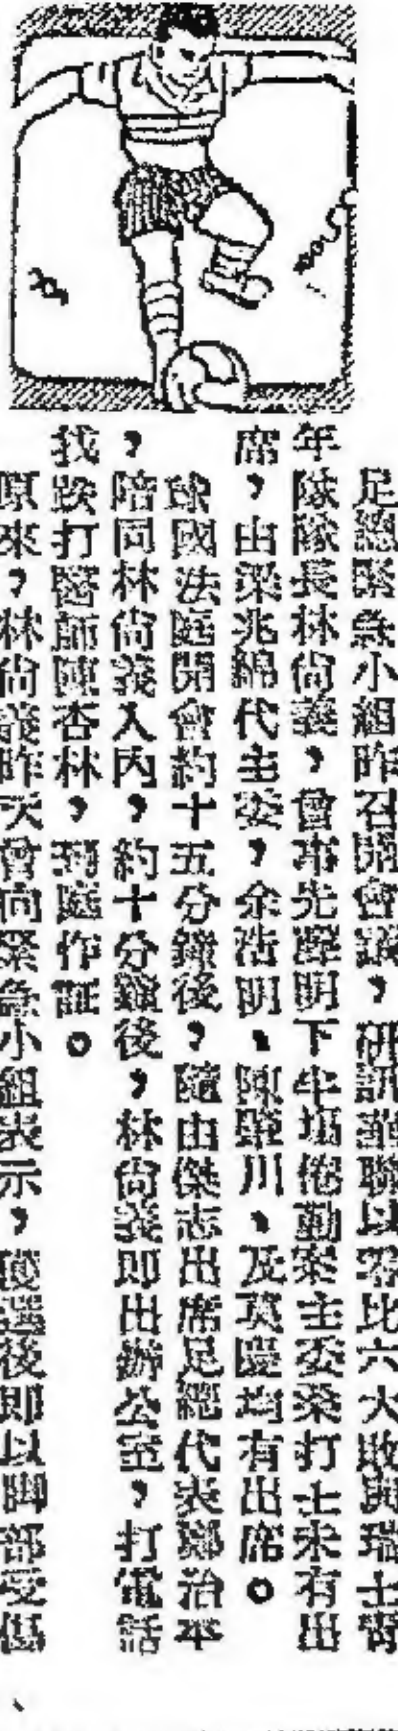 足總緊急小組昨召開會議，研訊華聯以零比六大敗與瑞士青
年隊隊長林尚義，曾事先聲明下半場倦勤案主委桑打士未有出
席，由梁兆綿代主委，余浩明、陳肇川、及莫慶均有出席。
球國法庭開會約十五分鐘後，隨由傑志出席足總代表鄭治平
，陪同林尚義入內，約十分鐘後，林尚義即出辦公室，打電話
找跌打醫師陳杏林，到庭作証。
原來，林尚義昨天曾向緊急小組表示，獲選後即以脚部受傷、